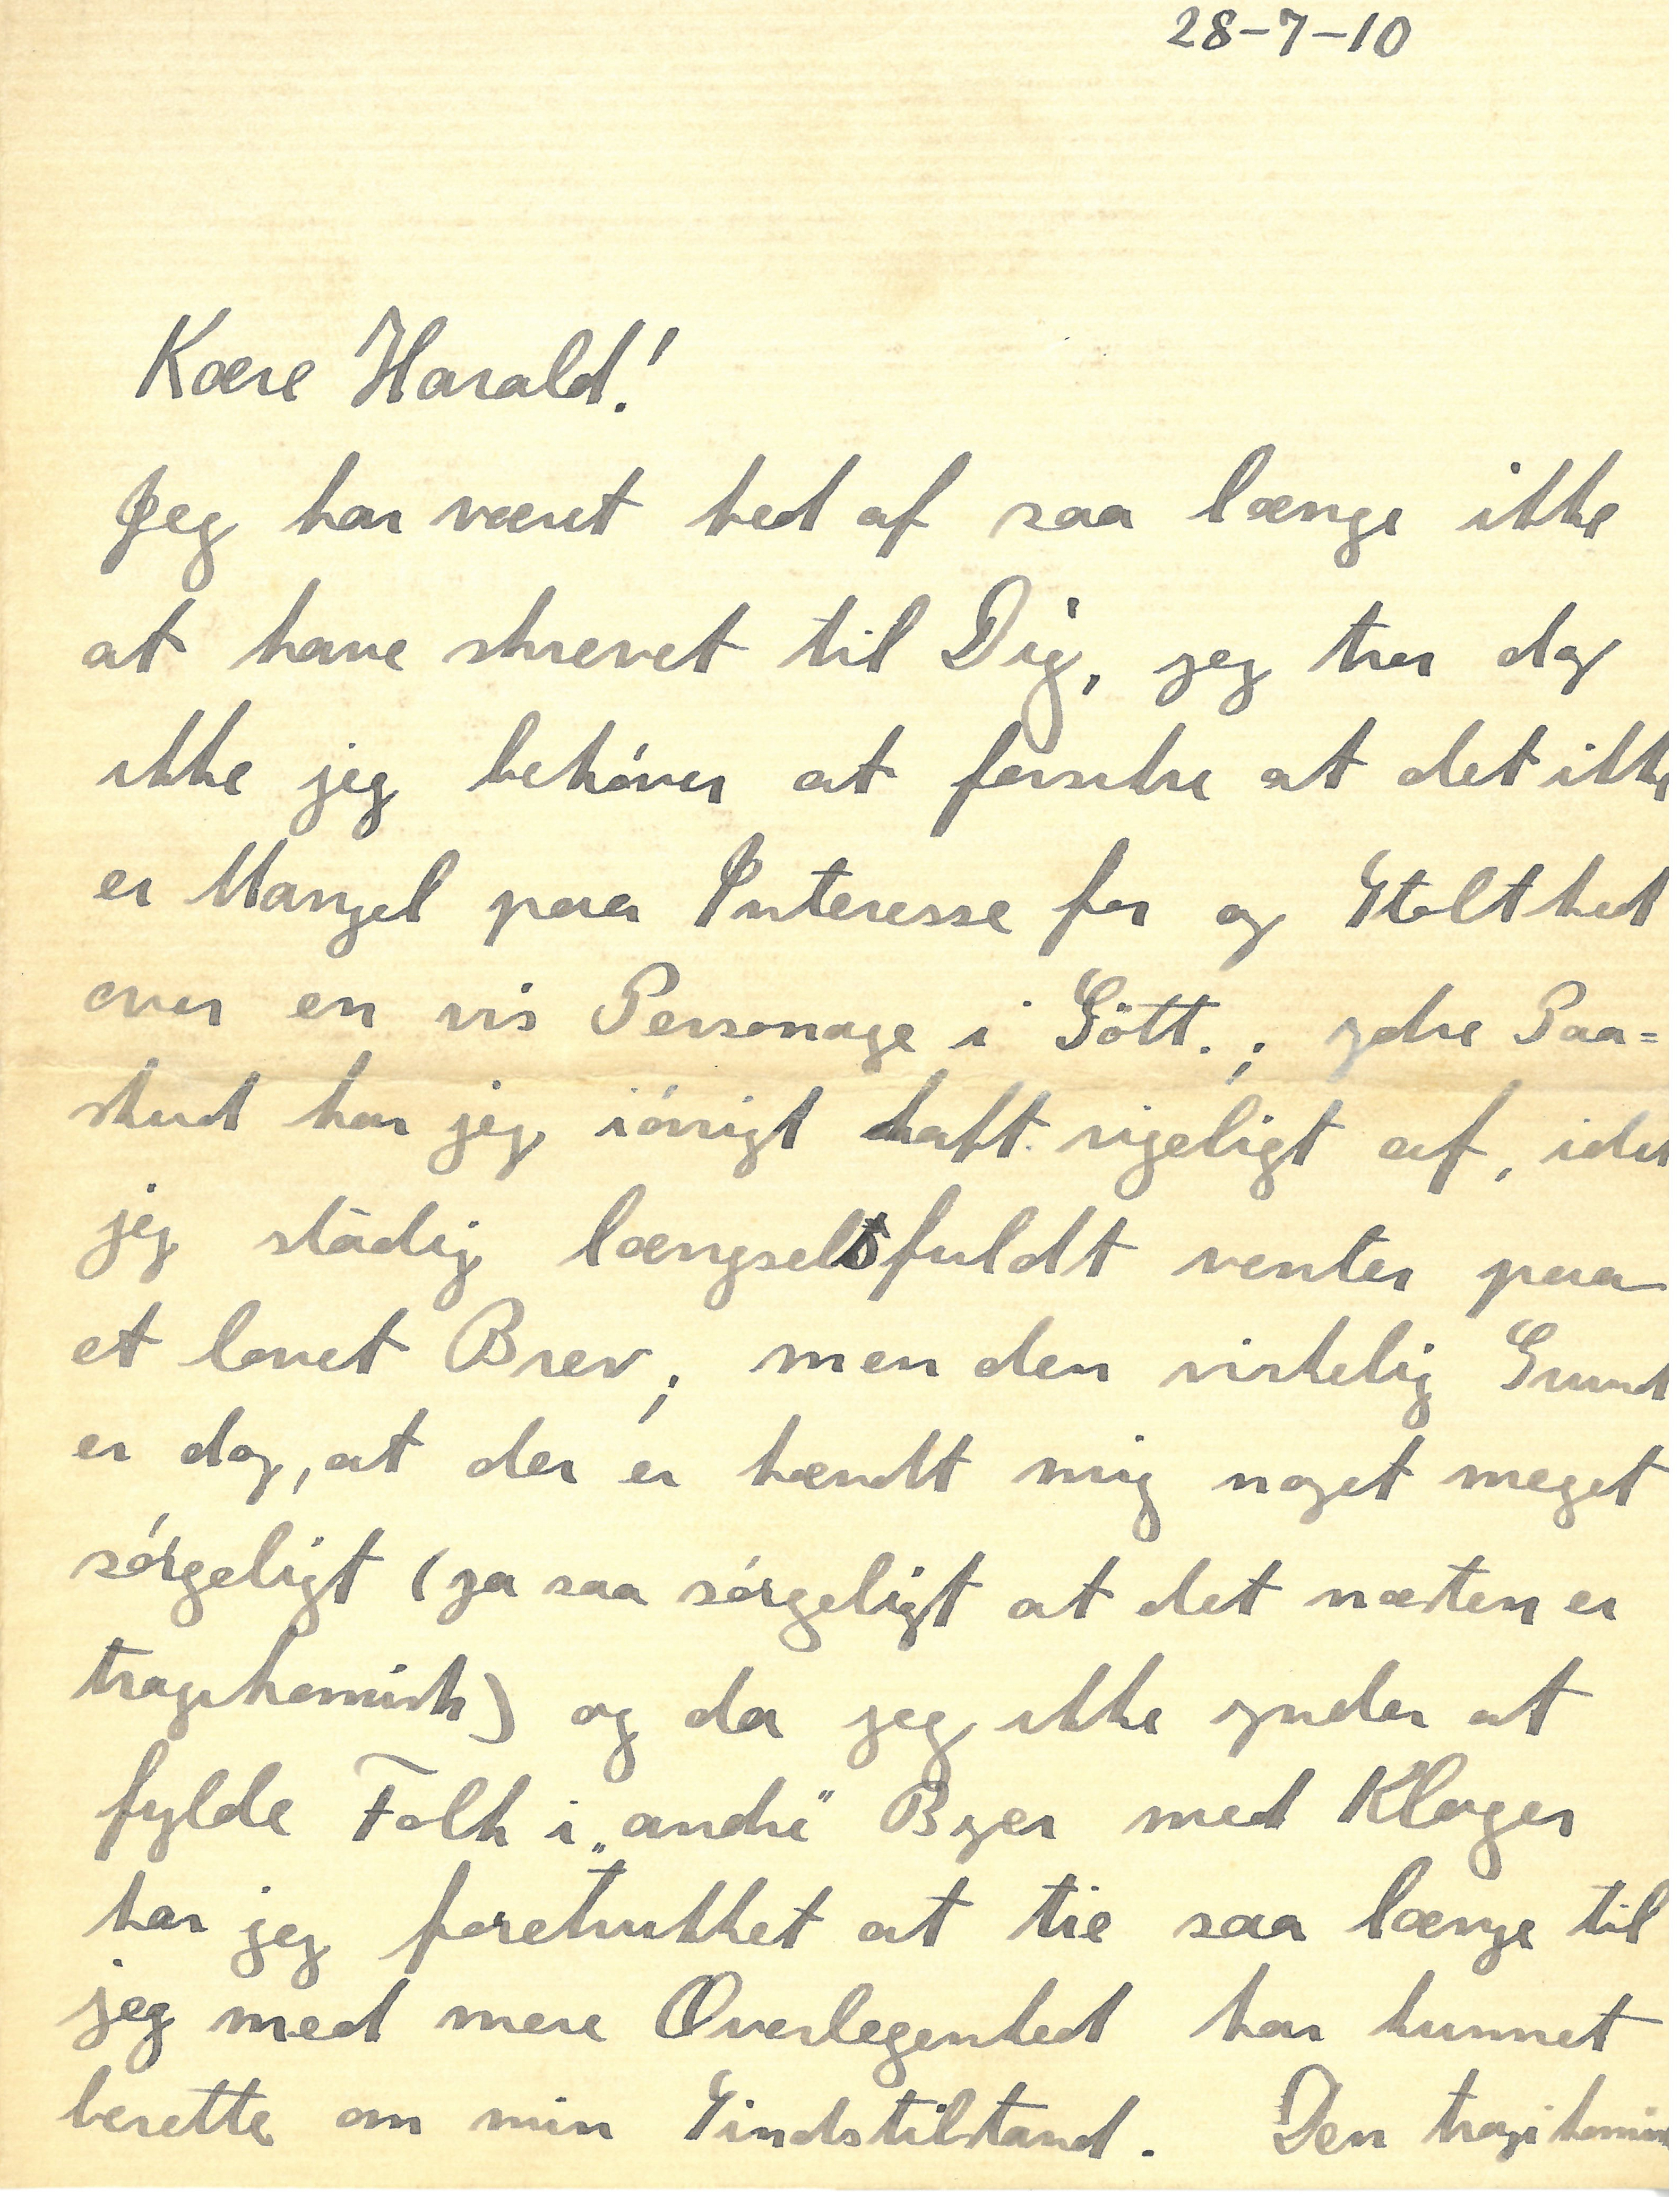 28-7-10
Kære Harald!
Jeg har været ked af saa længe ikke
at have skrevet til Dig, jeg tror dog
ikke jeg behóver at forsikre at det ikke
er Mangel paa Interesse for og Stolthed
over en vis Personage i Gött.; ydre Paa=
skud har jeg ióvrigt haft rigeligt af, idet
jeg städig længselsfuldt venter paa
et lovet Brev; men den virkelig Grund
er dog, at der er hændt mig noget meget
sórgeligt (ja saa sórgeligt at det næsten er
tragikomisk) og da jeg ikke ynder at
fylde Folk i „andre" Byer med Klager
har jeg foretrukket at tie saa længe til
jeg med mere Overlegenhed har kunnet
berette om min Sindstilstand. Den tragikomisk